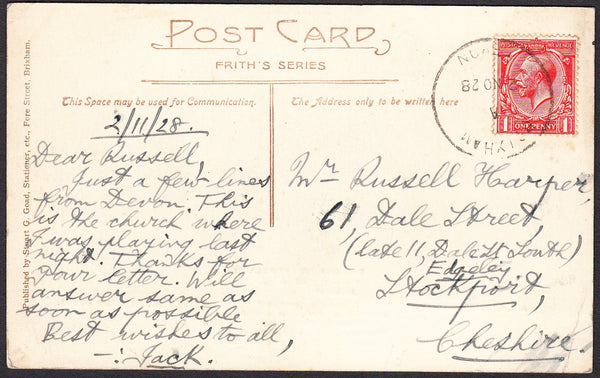 POST CARD
FRITH'S SERIES
This Space may be used for Communication.
The Address only to be written here
Published by Stuart G. Goad, Stationer, etc., Fore Street, Brixham.
2/11/28.
Dear Russell,
Just a few lines
from Devon. This
is the church where
I was playing last
night. Thanks for
your letter. Will
answer same as
soon as possible
Best wishes to all,
-: Jack.
Mr Russell Harper,
61, Dale Street,
(late 11, Dale St South)
Edgeley
Stockport,
Cheshire.
REVENUE
1 ONE PENNY 1
2 NO 28
DEVON